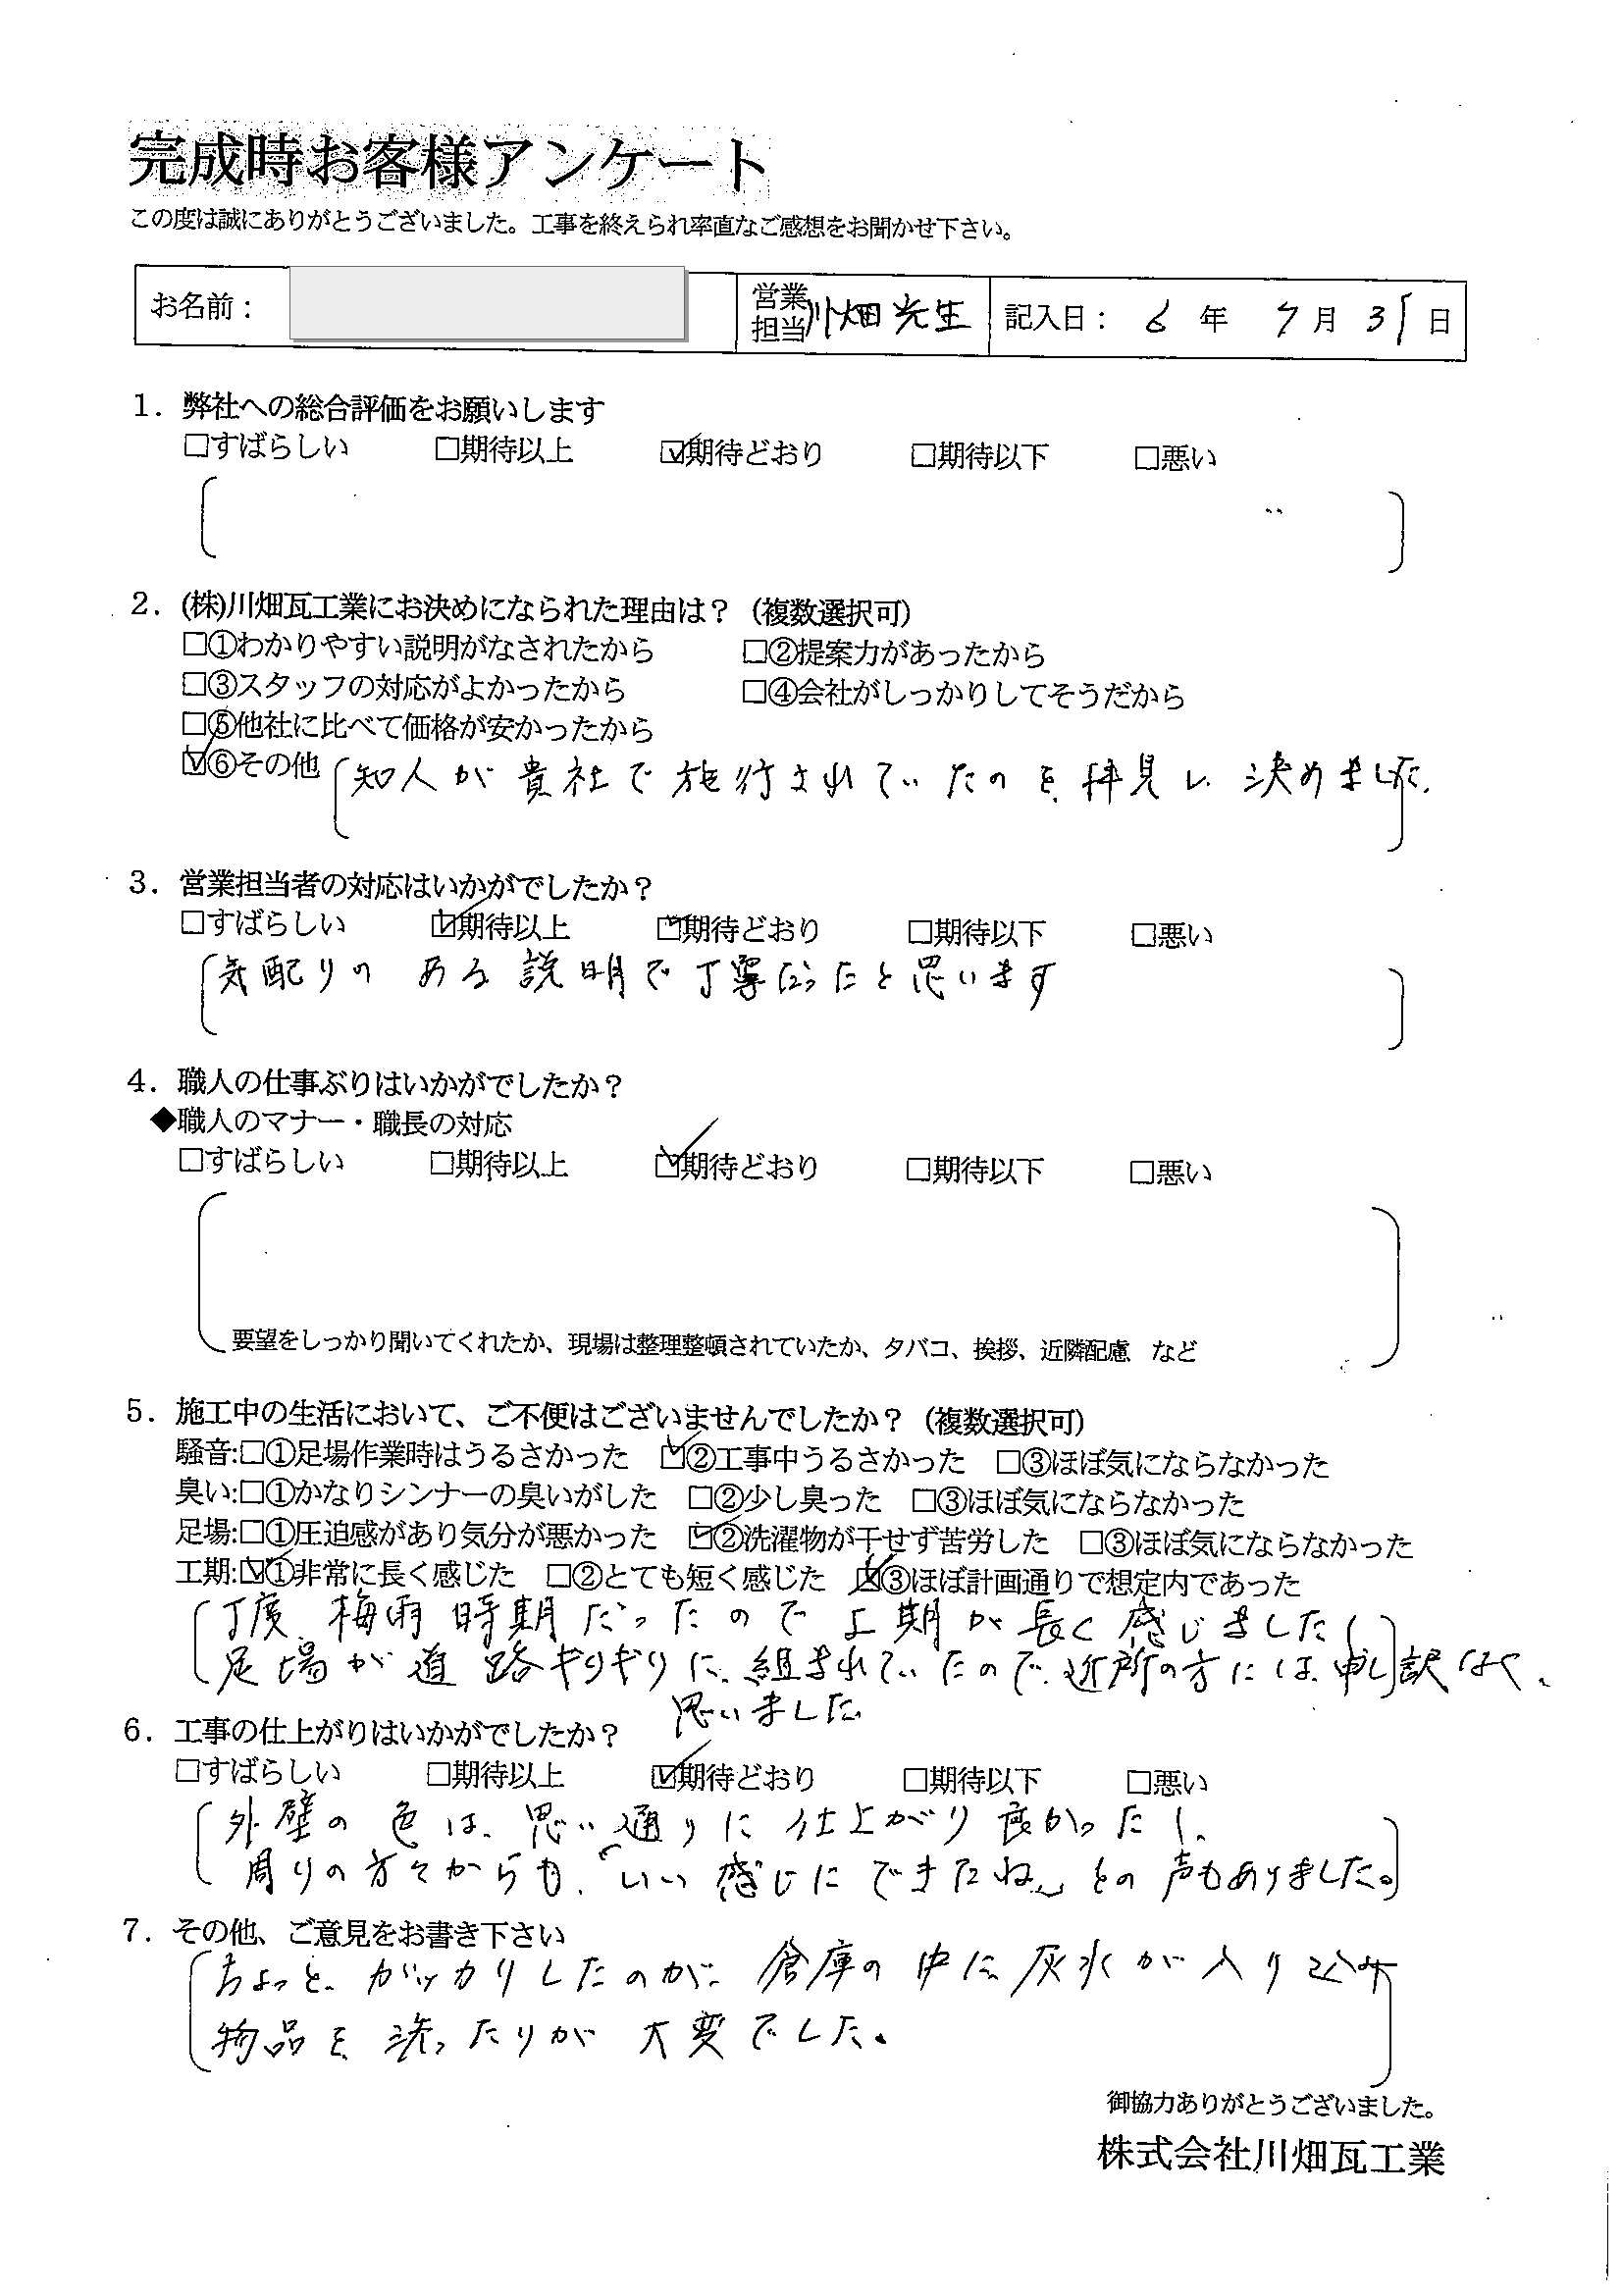 完成時お客様アンケート
この度は誠にありがとうございました。工事を終えられ率直なご感想をお聞かせ下さい。
お名前： 営業担当 川畑光生 記入日： 6 年 7 月 31 日
1．弊社への総合評価をお願いします
□すばらしい □期待以上 ☑期待どおり □期待以下 □悪い
2．(株)川畑瓦工業にお決めになられた理由は？（複数選択可）
□①わかりやすい説明がなされたから □②提案力があったから
□③スタッフの対応がよかったから □④会社がしっかりしてそうだから
□⑤他社に比べて価格が安かったから
☑⑥その他 知人が貴社で施行されていたのを、拝見し、決めました。
3．営業担当者の対応はいかがでしたか？
□すばらしい ☑期待以上 ☑期待どおり □期待以下 □悪い
気配りの ある説明で丁寧だったと思います
4．職人の仕事ぶりはいかがでしたか？
◆職人のマナー・職長の対応
□すばらしい □期待以上 ☑期待どおり □期待以下 □悪い
要望をしっかり聞いてくれたか、現場は整理整頓されていたか、タバコ、挨拶、近隣配慮 など
5．施工中の生活において、ご不便はございませんでしたか？（複数選択可）
騒音:□①足場作業時はうるさかった ☑②工事中うるさかった □③ほぼ気にならなかった
臭い:□①かなりシンナーの臭いがした □②少し臭った □③ほぼ気にならなかった
足場:□①圧迫感があり気分が悪かった ☑②洗濯物が干せず苦労した □③ほぼ気にならなかった
工期:☑①非常に長く感じた □②とても短く感じた ☑③ほぼ計画通りで想定内であった
丁度、梅雨時期だったので工期が長く感じました（
足場が道路ギリギリに、組まれていたので、近所の方には、申し訳なく、
思いました。
6．工事の仕上がりはいかがでしたか？
□すばらしい □期待以上 ☑期待どおり □期待以下 □悪い
外壁の色は、思い通りに仕上がり良かったし、
周りの方々からも、「いい感じにできたね」との声もありました。
7．その他、ご意見をお書き下さい
ちょっと、ガッカリしたのが、倉庫の中に灰水が入り込み
物品を、洗ったりが大変でした。
御協力ありがとうございました。
株式会社川畑瓦工業